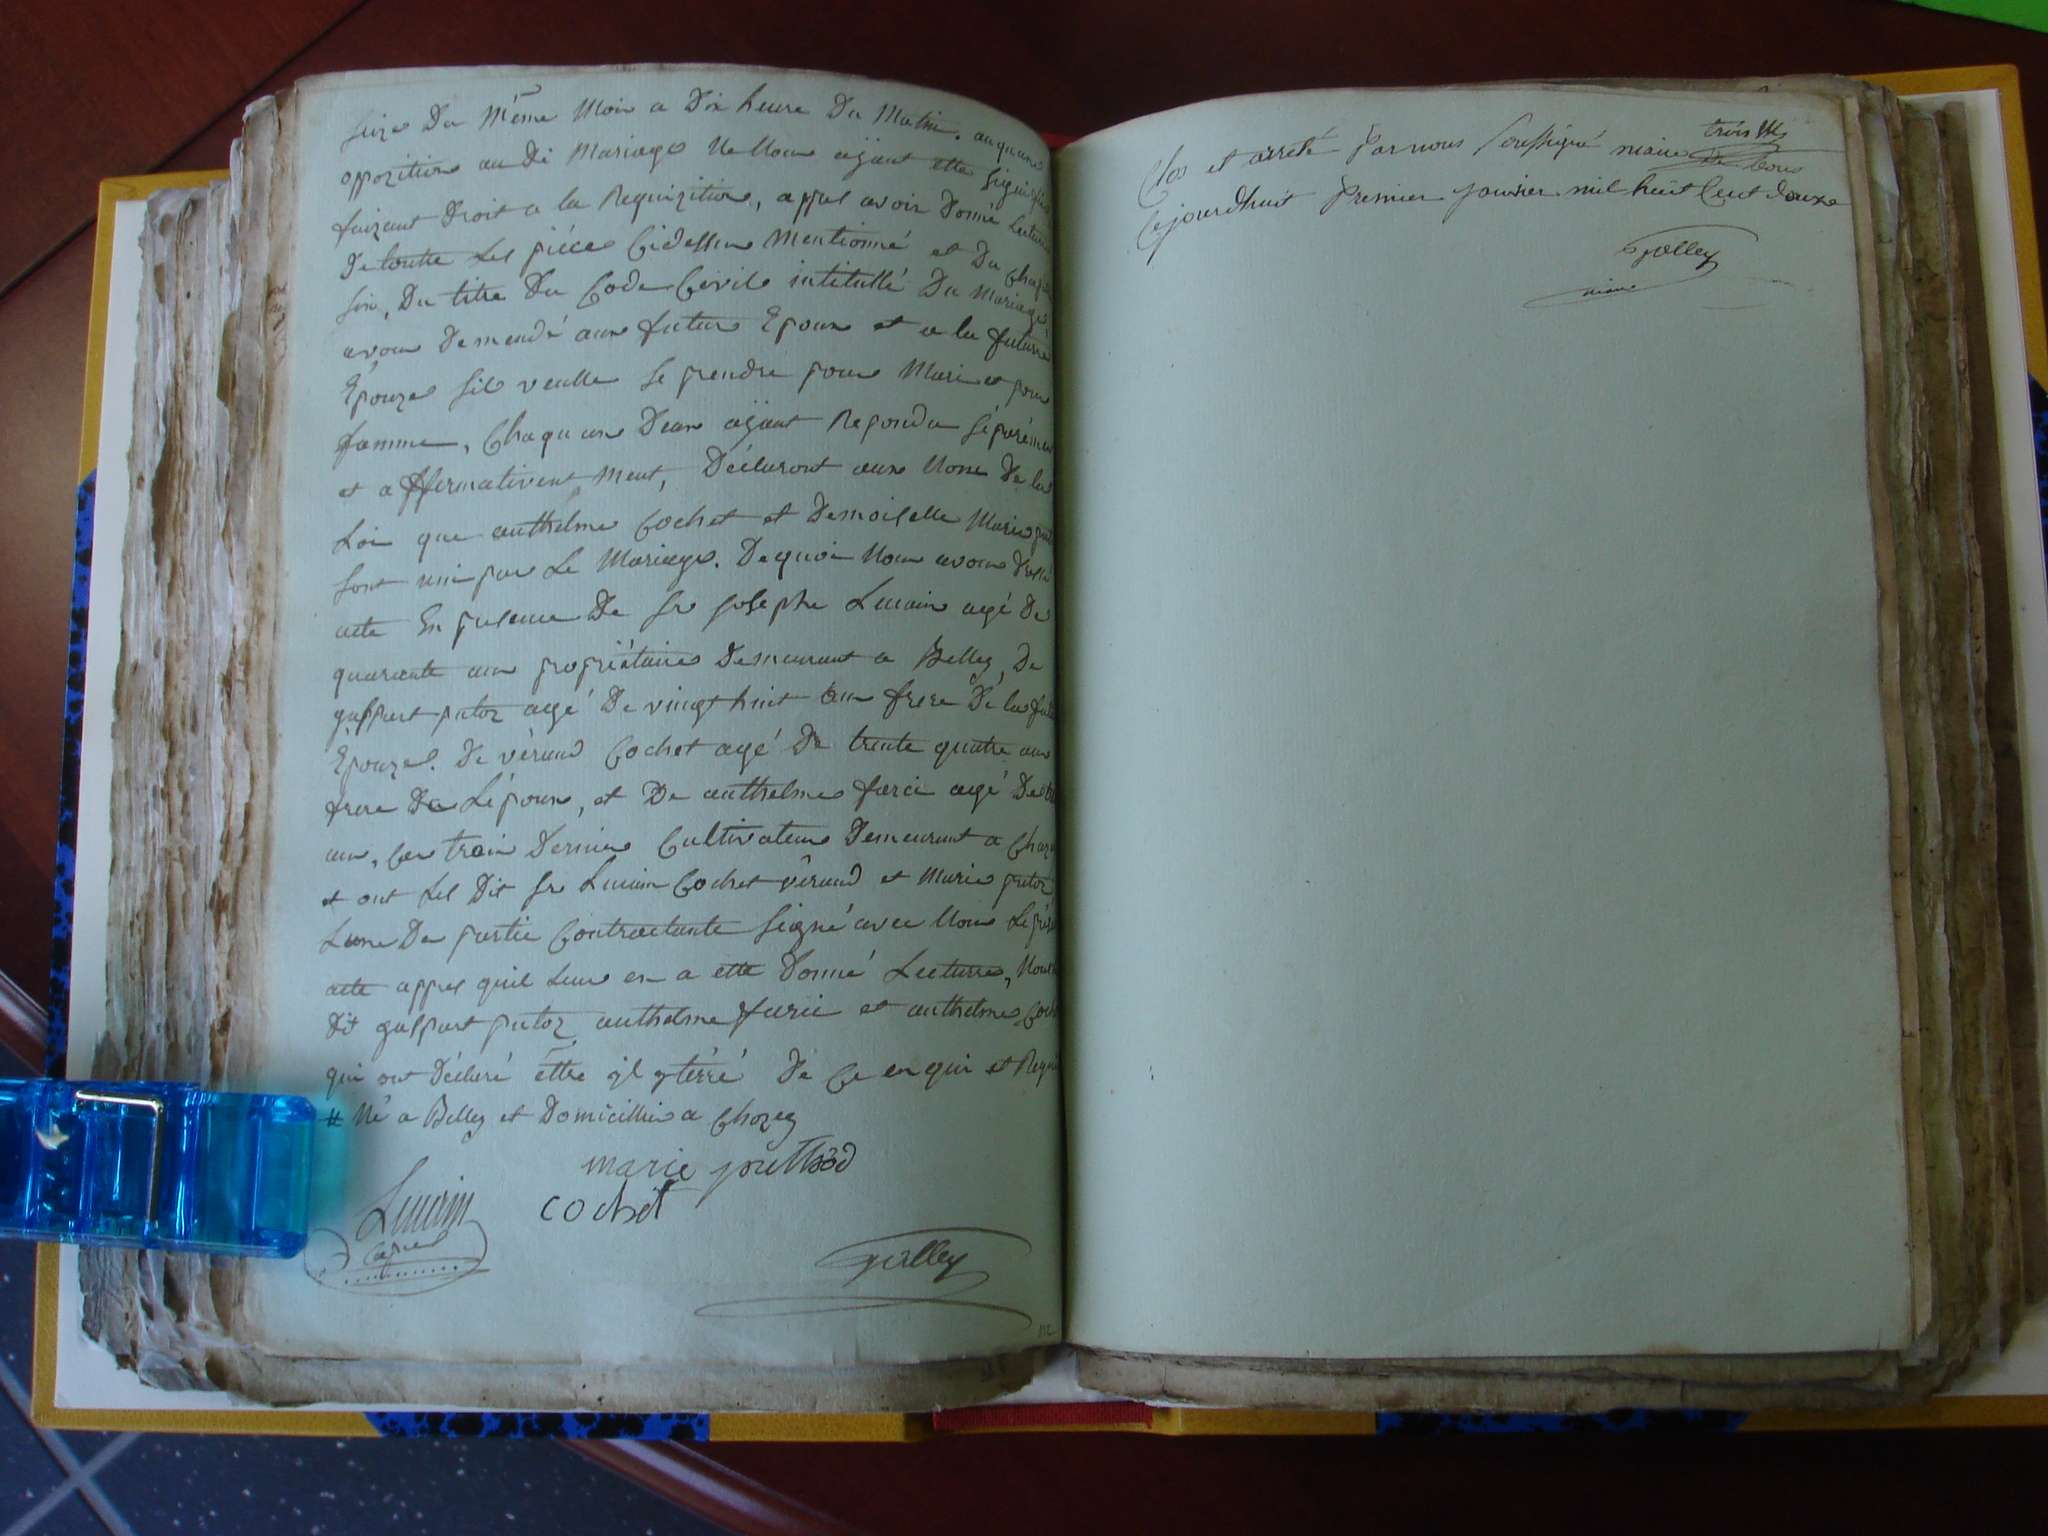 seize Du Même Mois a Dix heure Du Matin. auqune
opposition au di Mariage Ne Nous aÿant etté signifié
faizant Droit a la Requizition, appres avoir Donné Lecture
De toutte Les pièces Cidessus Mentionné et Du Chapitre
six, Du titre Du Code Civile intitullé Du Mariage,
avons Demendé aux futur Epoux et a la future
Epouze sil veulle se prendre pour Mari et pour
famme, Chaqu'un Deux aÿant Repondu séparémen
et affermativent ment, Déclaront aux Nom De la
Loi que anthelme Cochet et Demoiselle Marie
sont uni par Le Mariage. De quoi Nous avons Dressé
acte En presence De sr Josephe Lucain agé De
quarante ans propriétaire Demeurant a Belley, De
gaspart putoz agé De vingt huit ans frere De la fut
Epouze. De vérand Cochet agé De trente quatre ans
frere De Lépoux, et De anthelme farci agé De
ans, Ces trois Dernier Cultivateur Demeurant a Chaz
et ont Les Dit sr Lucain Cochet vérand et Marie putoz
Lune De partie Contractante signé avec Nous Le prés
acte appres quil Leur en a etté Donné Lecturre, Non
Dit gaspart putoz anthelme farci et anthelme Coch
qui ont Déclaré ettre ylytérré De Ce enqui et Requi
# Né a Belley et Domicillié a Chazey
marie puthod
Lucain
cochet
golley
Clos et arreté par nous soussigné maire
Cejourdhuit premier janvier mil huit Cent douze
golley
maire